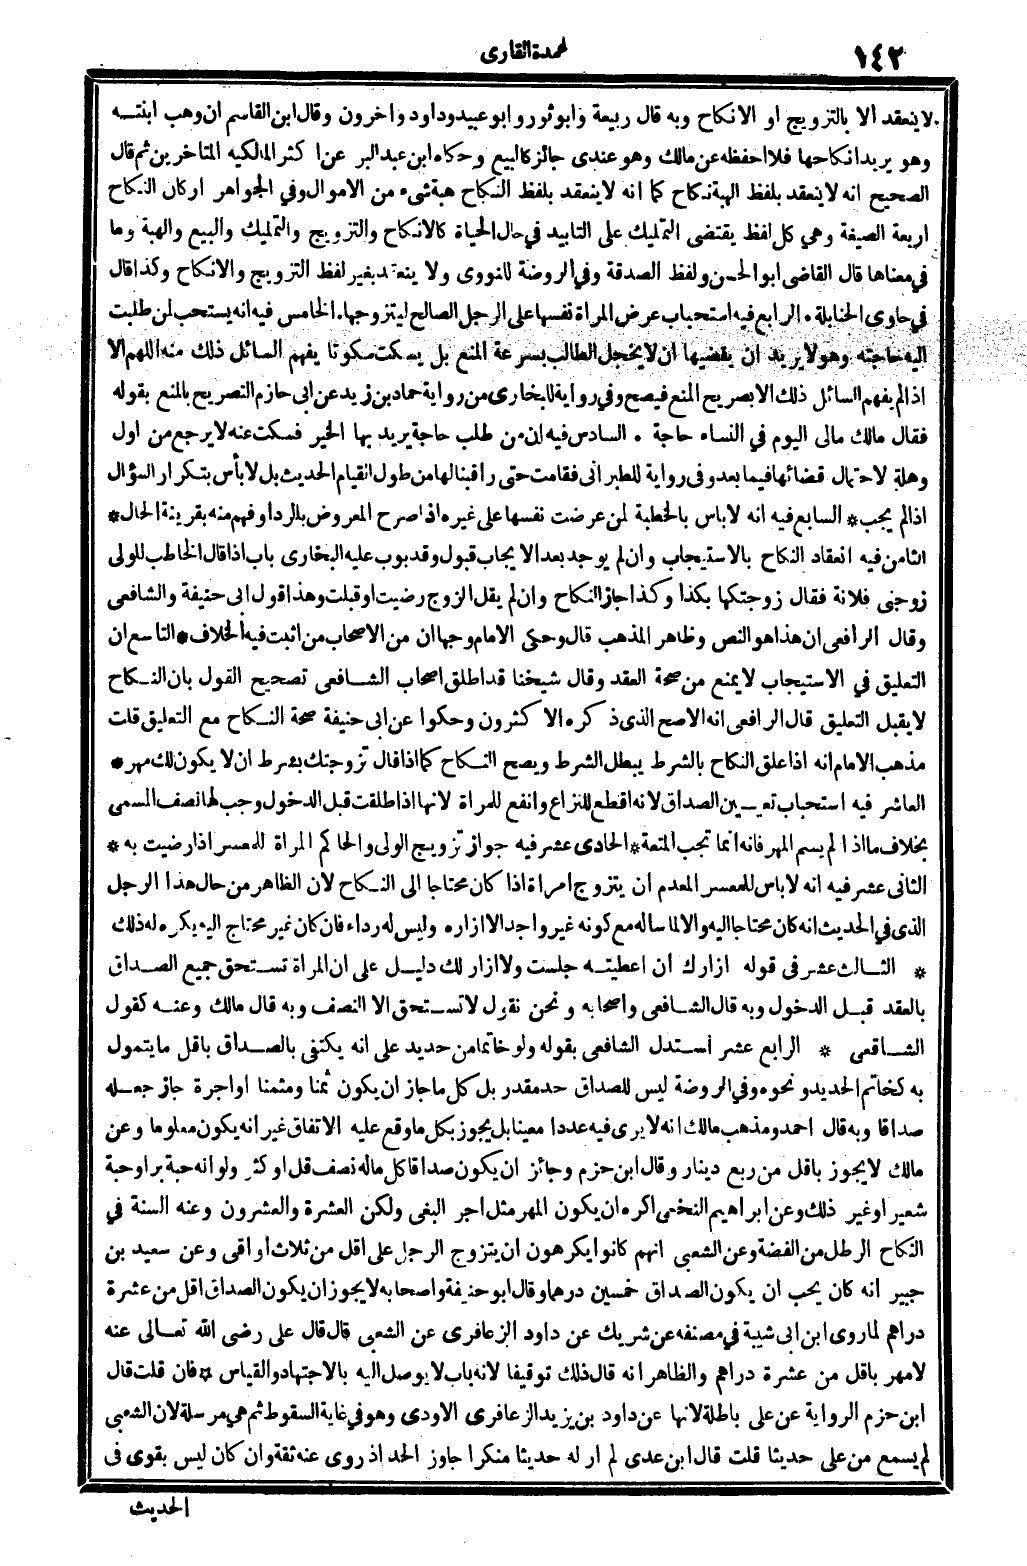 ١٤٢
عمدة القارى
لا ينعقد الا بالتزويج او الانكاح وبه قال ربيعة وابو ثور وابو عبيد وداود واخرون وقال ابن القاسم ان وهب ابنته
وهو يريد انكاحها فلا احفظه عن مالك وهو عندى جائز كالبيع وحكاه ابن عبد البر عن اكثر المالكيه المتاخرين ثم قال
الصحيح انه لا ينعقد بلفظ الهبة نكاح كما انه لا ينعقد بلفظ النكاح هبة شىء من الاموال وفي الجواهر اركان النكاح
اربعة الصيغة وهي كل لفظ يقتضى التمليك على التابيد في حال الحياة كالانكاح والتزويج والتمليك والبيع والهبة وما
في معناها قال القاضى ابو الحسن ولفظ الصدقة وفي الروضة للنووى ولا ينعقد بغير لفظ التزويج والانكاح وكذا قال
في حاوى الحنابلة • الرابع فيه استحباب عرض المراة نفسها على الرجل الصالح ليتزوجها. الخامس فيه انه يستحب لمن طلبت
اليه حاجته وهو لا يريد ان يقضيها ان لا يخجل الطالب بسرعة المنع بل يسكت سكوتا يفهم السائل ذلك منه اللهم الا
اذا لم يفهم السائل ذلك الا بصريح المنع فيصح وفي رواية للبخارى من رواية حماد بن زيد عن ابى حازم التصريح بالمنع بقوله
فقال مالك مالى اليوم في النساء حاجة • السادس فيه ان من طلب حاجة يريد بها الخير فسكت عنه لا يرجع من اول
وهلة لاحتمال قضائها فيما بعد وفى رواية للطبرانى فقامت حتى راقبنا لها من طول القيام الحديث بل لا بأس بتكرار السؤال
اذا لم يجب * السابع فيه انه لا باس بالخطبة لمن عرضت نفسها على غيره اذا صرح المعروض بالرد او فهم منه بقرينة الحال *
الثامن فيه انعقاد النكاح بالاستيجاب وان لم يوجد بعد الايجاب قبول وقد بوب عليه البخارى باب اذا قال الخاطب للولى
زوجنى فلانة فقال زوجتكها بكذا وكذا جاز النكاح وان لم يقل الزوج رضيت او قبلت وهذا قول ابى حنيفة والشافعى
وقال الرافعى ان هذا هو النص وظاهر المذهب قال وحكى الامام وجها ان من الاصحاب من اثبت فيه الخلاف * التاسع ان
التعليق في الاستيجاب لا يمنع من صحة العقد وقال شيخنا قد اطلق اصحاب الشافعى تصحيح القول بان النكاح
لا يقبل التعليق قال الرافعى انه الاصح الذى ذكره الاكثرون وحكوا عن ابى حنيفة صحة النكاح مع التعليق قلت
مذهب الامام انه اذا علق النكاح بالشرط يبطل الشرط ويصح النكاح كما اذا قال تزوجتك بشرط ان لا يكون لك مهر *
العاشر فيه استحباب تعيين الصداق لانه اقطع للنزاع وانفع للمراة لانها اذا طلقت قبل الدخول وجب لها نصف المسمى
بخلاف ما اذا لم يسم المهر فانه انما تجب المتعة * الحادى عشر فيه جواز تزويج الولى والحاكم المراة للمعسر اذا رضيت به *
الثانى عشر فيه انه لا باس للمعسر المعدم ان يتزوج امراة اذا كان محتاجا الى النكاح لان الظاهر من حال هذا الرجل
الذى في الحديث انه كان محتاجا اليه والا لما ساله مع كونه غير واجد الا ازاره وليس له رداء فان كان غير محتاج اليه يكره له ذلك
* الثالث عشر فى قوله ازارك ان اعطيته جلست ولا ازار لك دليل على ان المراة تستحق جميع الصداق
بالعقد قبل الدخول وبه قال الشافعى واصحابه ونحن نقول لا تستحق الا النصف وبه قال مالك وعنه كقول
الشافعى * الرابع عشر استدل الشافعى بقوله ولو خاتما من حديد على انه يكتفى بالصداق باقل ما يتمول
به كخاتم الحديد ونحوه وفي الروضة ليس للصداق حد مقدر بل كل ما جاز ان يكون ثمنا ومثمنا او اجرة جاز جعله
صداقا وبه قال احمد ومذهب مالك انه لا يرى فيه عددا معينا بل يجوز بكل ما وقع عليه الاتفاق غير انه يكون معلوما وعن
مالك لا يجوز باقل من ربع دينار وقال ابن حزم وجائز ان يكون صداقا كل ماله نصف قل او كثر ولو انه حبة بر او حبة
شعير او غير ذلك وعن ابراهيم النخعى اكره ان يكون المهر مثل اجر البغى ولكن العشرة والعشرون وعنه السنة في
النكاح الرطل من الفضة وعن الشعبى انهم كانوا يكرهون ان يتزوج الرجل على اقل من ثلاث اواقى وعن سعيد بن
جبير انه كان يحب ان يكون الصداق خمسين درهما وقال ابو حنيفة واصحابه لا يجوز ان يكون الصداق اقل من عشرة
دراهم لما روى ابن ابى شيبة في مصنفه عن شريك عن داود الزعافرى عن الشعبى قال قال على رضى الله تعالى عنه
لا مهر باقل من عشرة دراهم والظاهر انه قال ذلك توقيفا لانه باب لا يوصل اليه بالاجتهاد والقياس * فان قلت قال
ابن حزم الرواية عن على باطلة لانها عن داود بن يزيد الزعافرى الاودى وهو في غاية السقوط ثم هي مرسلة لان الشعبى
لم يسمع من على حديثا قلت قال ابن عدى لم ار له حديثا منكرا جاوز الحد اذ روى عنه ثقة وان كان ليس بقوى فى
الحديث